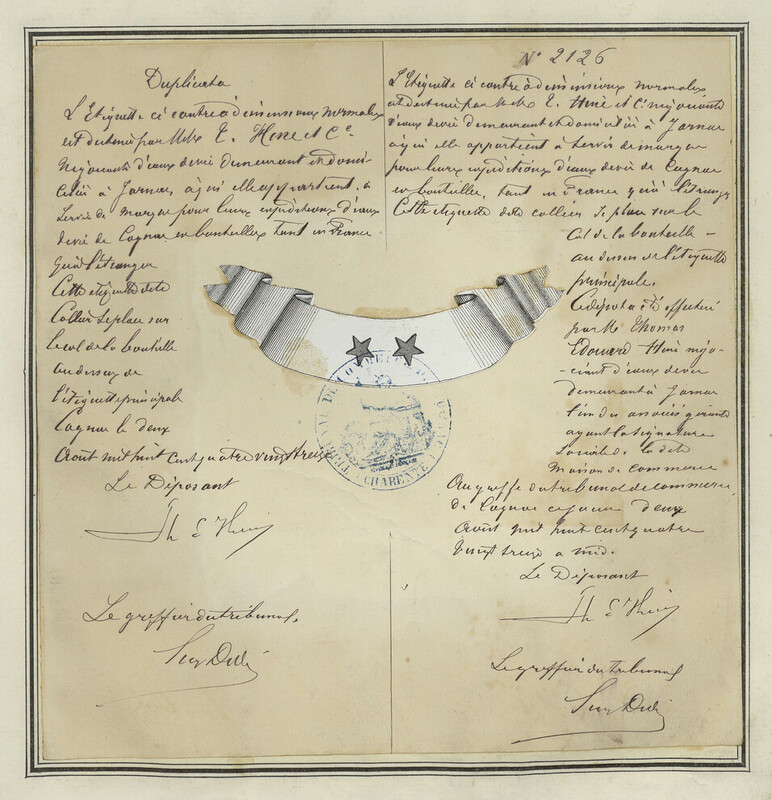 Duplicata
L'Etiquette ci contre à dimensions normales
est détenue par M.M. T. Hine et Cie
Négociants d'eaux devie demeurant et domi-
ciliés à Jarnac, à qui elle appartient, à
servir de marque pour leurs expéditions d'eaux
devie de Cognac en bouteilles tant en France
qu'à l'étranger
Cette etiquette dite
Collier se place sur
le col de la bouteille
au dessus de
l'étiquette principale
Cognac le deux
Aout mil huit cent quatre vingt treize
Le Déposant
Th E Hine
Le greffier du tribunal,
N° 2126
L'Etiquette ci contre à dimensions normales
est détenue par M.M. T. Hine et Cie négociants
d'eaux devie demeurant et domiciliés à Jarnac
à qui elle appartient à servir de marque
pour leurs expéditions d'eaux devie de Cognac
en bouteilles, tant en France qu'à l'étranger
Cette etiquette dite collier se place sur le
Col de la bouteille -
au dessus de l'étiquette
principale.
Ce dépot a été effectué
par M. Thomas
Edouard Hine négo-
-ciant d'eaux devie
demeurant à Jarnac
l'un des associés gérants
ayant la signature
sociale de la dite
Maison de commerce
Au greffe du tribunal de commerce,
de Cognac ce jour deux
Aout mil huit cent quatre
vingt treize a midi.
Le Déposant
Th E Hine
Le greffier du tribunal
TRIBUNAL DE COMMERCE DE COGNAC
CHARENTE